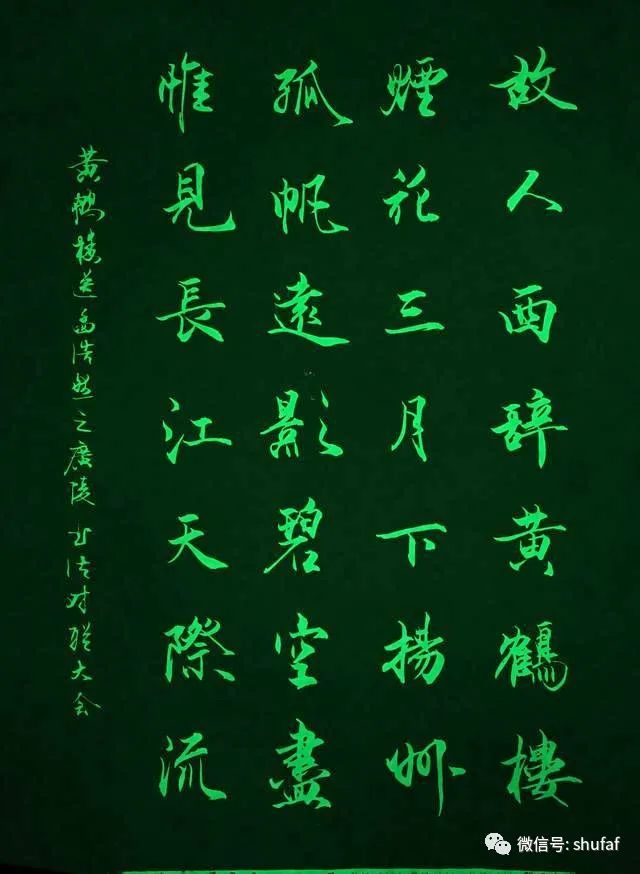 故人西辞黄鶴樓
煙花三月下揚州
孤帆遠影碧空盡
惟見長江天際流
黃鶴樓送孟浩然之廣陵 书法对联大会
微信号: shufaf